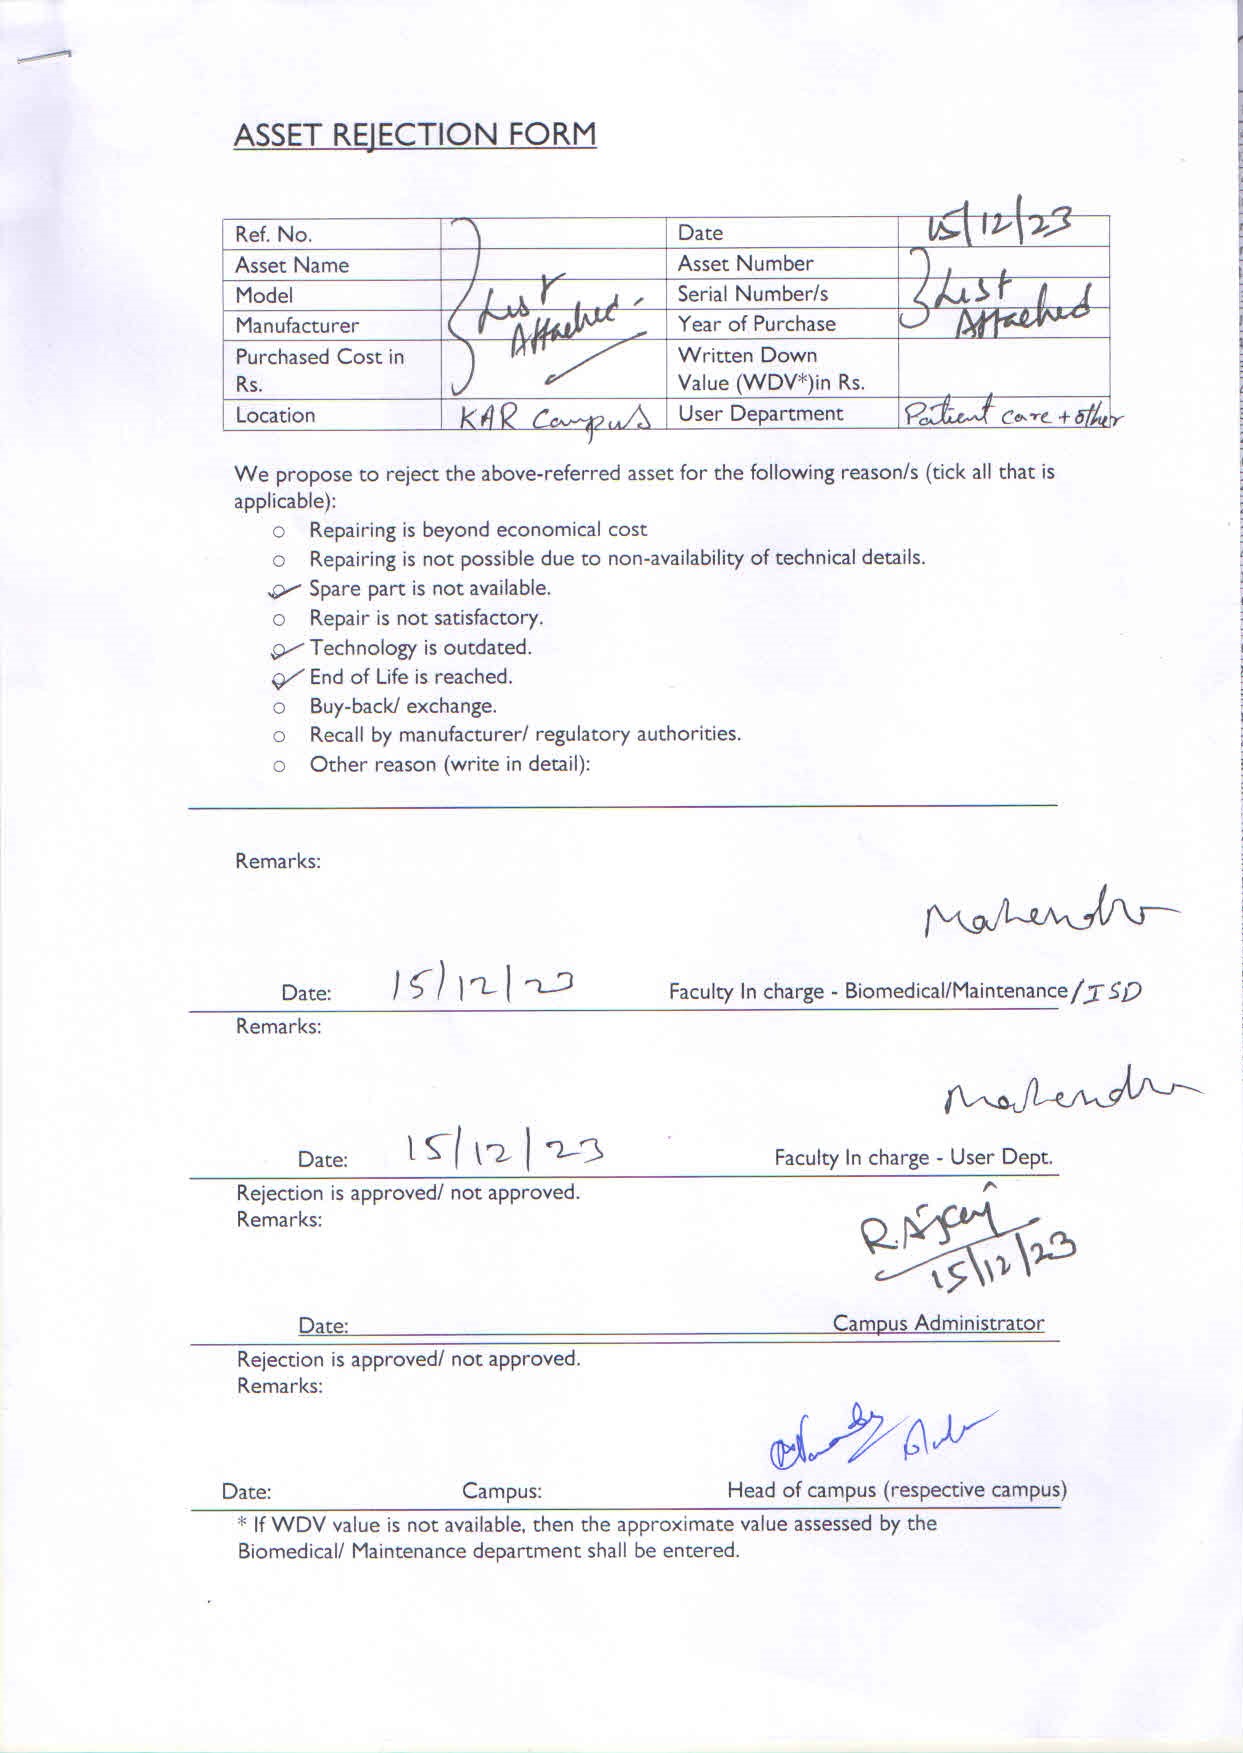 ASSET REJECTION FORM
Ref. No. Date 15/12/23
Asset Name Asset Number
Model List Attached Serial Number/s List Attached
Manufacturer Year of Purchase
Purchased Cost in Rs. Written Down Value (WDV*)in Rs.
Location KAR Campus User Department Patient care + other
We propose to reject the above-referred asset for the following reason/s (tick all that is
applicable):
○ Repairing is beyond economical cost
○ Repairing is not possible due to non-availability of technical details.
✓ Spare part is not available.
○ Repair is not satisfactory.
✓ Technology is outdated.
✓ End of Life is reached.
○ Buy-back/ exchange.
○ Recall by manufacturer/ regulatory authorities.
○ Other reason (write in detail):
Remarks:
Mahendra
Date: 15/12/23 Faculty In charge - Biomedical/Maintenance/ISD
Remarks:
Mahendra
Date: 15/12/23 Faculty In charge - User Dept.
Rejection is approved/ not approved.
Remarks:
15/12/23
Date: Campus Administrator
Rejection is approved/ not approved.
Remarks:
Date: Campus: Head of campus (respective campus)
* If WDV value is not available, then the approximate value assessed by the
Biomedical/ Maintenance department shall be entered.